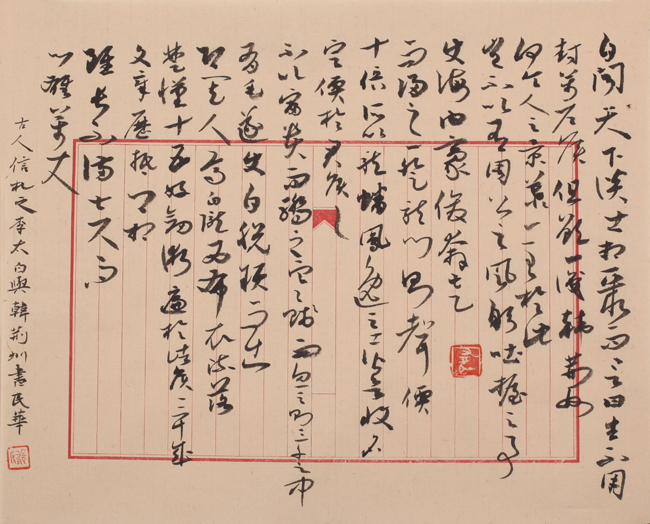 白聞天下談士相聚而言曰生不用
封萬户侯但願一識韓荊州
何令人之景慕一至於此
豈不以有周公之風躬吐握之事
使海内豪俊奔走
而歸之一登龍門則聲價
十倍所以龍蟠鳳逸之士皆欲收名
定價於君侯
不以富貴而驕之寒賤而忽之則三千之中
有毛遂使白脱穎而出
即其人焉白隴西布衣流落
楚漢十五好劍術遍干於諸侯三十成
文章歷抵卿相
雖長不滿七尺而
心雄萬丈
古人信札之李太白與韓荊州書民華